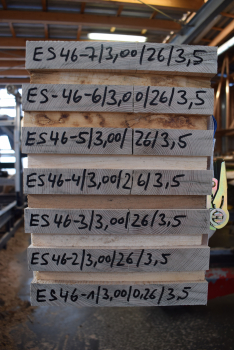 ES46-7/3,00/26/3,5
ES-46-6/3,00/26/3,5
ES46-5/3,00/26/3,5
ES46-4/3,00/26/3,5
ES46-3/3,00/26/3,5
ES46-2/3,00/26/3,5
ES46-1/3,00/0,26/3,5